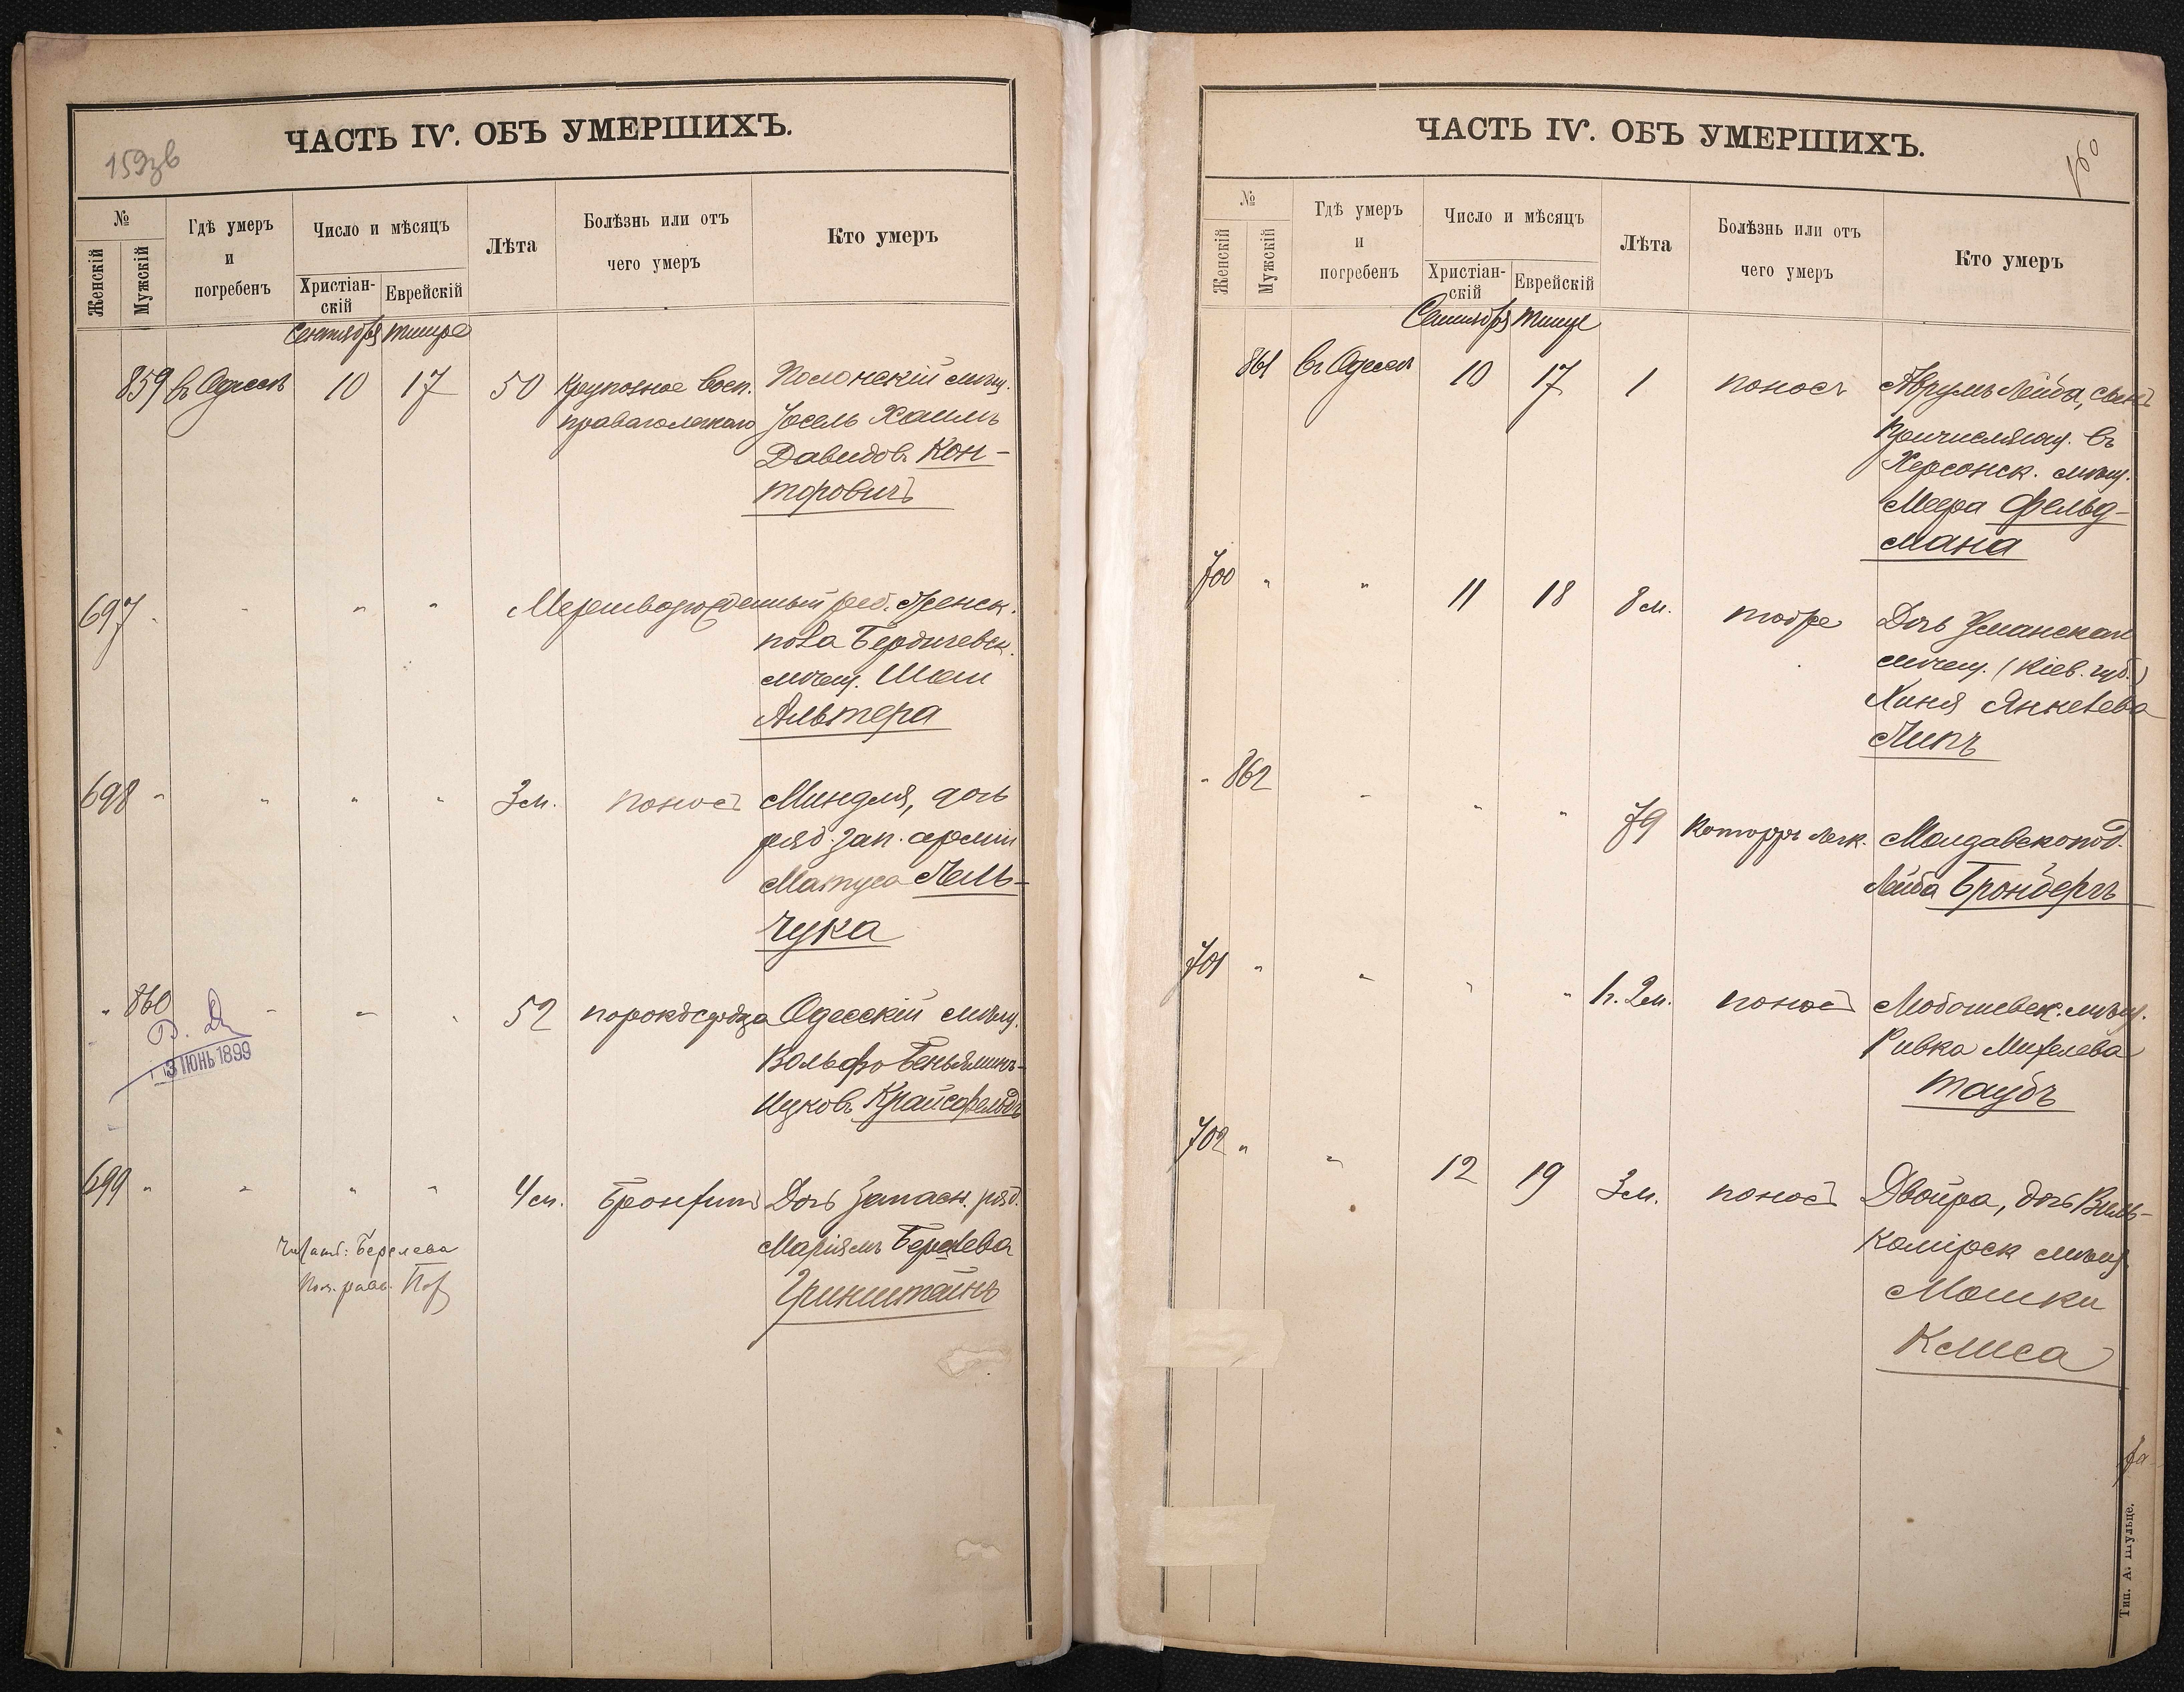 159зв
ЧАСТЬ IV. ОБЪ УМЕРШИХЪ.
№
Женскій
Мужскій
Гдѣ умеръ
и
погребенъ
Число и мѣсяцъ
Христіан-
скій
Еврейскій
Лѣта
Болѣзнь или отъ
чего умеръ
Кто умеръ
Сентября Тишре
859 въ Одессѣ 10 17 50 Крупозное восп. Полонскій мѣщ.
праваго легкаго Іосель Хаимъ
Давидов. Кон-
торовичъ
697 " " " " Мертворожденный реб. женск.
пола Бердичевск.
мѣщ.
Альтера
698 " " " " 3 м. поносъ Миндля, дочь
ряд. зап. арміи
Матуса Пель-
чука
" 860 " " " 52 порокъ сердца Одесскій мѣщ.
Вольфъ Беньяминъ-
Ицковъ Крайсфельдъ
3 ІЮНЬ 1899
699 " " " " 4 м. Бронхит Дочь Запасн. ряд.
Маріямъ Берелева
Гринштейнъ
Читать: Берелева
Пом. рав.
160
ЧАСТЬ IV. ОБЪ УМЕРШИХЪ.
№
Женскій
Мужскій
Гдѣ умеръ
и
погребенъ
Число и мѣсяцъ
Христіан-
скій
Еврейскій
Лѣта
Болѣзнь или отъ
чего умеръ
Кто умеръ
Сентября Тишре
861 въ Одессѣ 10 17 1 поносъ Аврумъ Лейба, сынъ
причисляющ. въ
Херсонск. мѣщ.
Меера Фельд-
мана
700 " " 11 18 8 м. Дочь Уманской
мѣщ. (Кіев. губ.)
Хиня Янкелева
Липъ
" 862 " " " 79 Котарръ легк. Молдавскопод.
Лейба Бронбергъ
701 " " " " 1 г. 2 м. поносъ мѣщ.
Ривка Михелева
Таубъ
702 " " 12 19 3 м. поносъ Двойра, дочь Виль-
комірск мѣщ
Мошки
Клиса
Тип. А. Шульце.